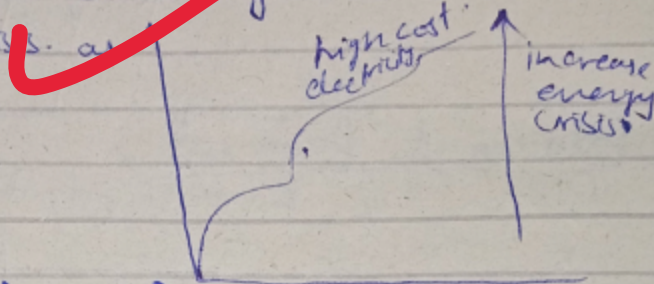 high cost
electricity
increase
energy
crisis.